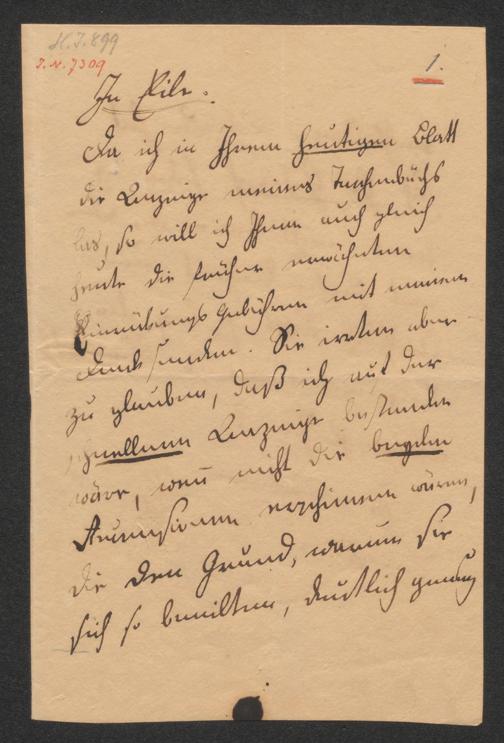 H.I.899
I.N.7309
1.
In Eile.
Da ich in Ihrem heutigen Blatt
die Anzeige meines Taschenbuchs
las, so will ich Ihnen auch gleich
heute die früher erwähnten
Einrückungs Gebühren mit meinem
Dank senden. Sie irrten aber
zu glauben, daß ich auf der
schnellern Anzeige bestanden
wäre, wenn nicht die
erschienen wären,
die den Grund, warum sie
sich so beeilten, deutlich genug